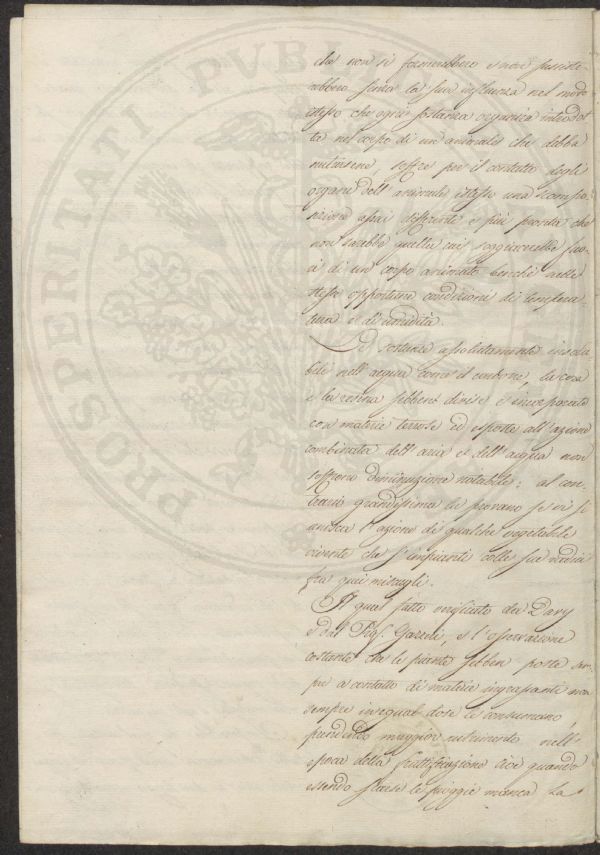 che non si formerebbero e non sussiste-
rebbero senza la sua influenza nel modo
istesso che ogni sostanza organica introdot
ta nel corpo di un animale che debba
nutrirsene, soffre per il contatto degli
organi dell' animale istesso una scompo-
sizione assai differente e più pronta che
non sarebbe quella cui soggiacerebbe fuo-
ri di un corpo animato benchè nelle
stesse opportune condizioni di tempera-
tura e di umidità.
Le sostanze assolutamente insolu-
bili nell' acqua come il carbone, la cera
e la resina sebbene divise e incorporate
con materie terrose ed esposte all' azione
combinata dell' aria e dell' acqua non
soffrono diminuzione notabile: al con-
trario grandissima la provano se vi si
unisca l' azione di qualche vegetabile
vivente che s' impianti colle sue radici
fra quei miscugli.
Il qual fatto verificato da Davy
e dal Prof. Gazzeri, e l' osservazione
costante che le piante sebben poste sem-
pre a contatto di materie ingrassanti non
sempre in egual dose le consumano,
prendendo maggior nutrimento nell'
epoca della fruttificazione cioè quando
essendo scarse le piogge manca la
PROSPERITATI PVBLI